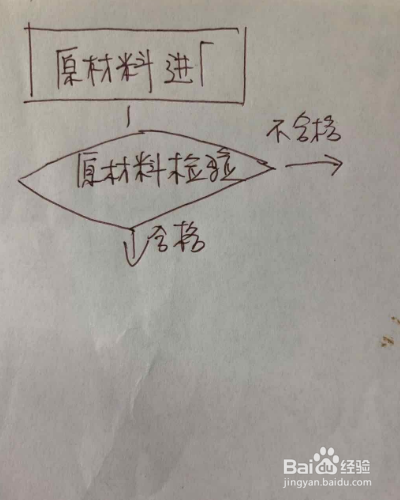 原材料进厂
不合格
原材料检验
合格
Baidu经验
jingyan.baidu.com